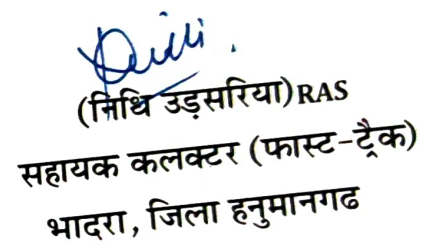 (निधि उड़सरिया)RAS
सहायक कलक्टर (फास्ट-ट्रैक)
भादरा, जिला हनुमानगढ